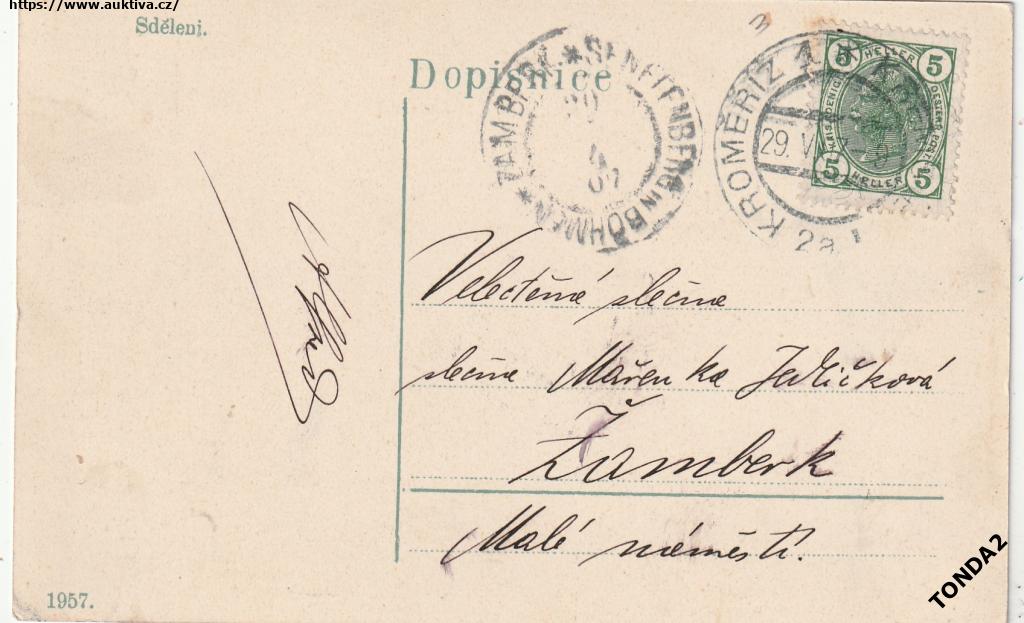 https://www.auktiva.cz/
Sdělení.
Dopisnice
ŽAMBERK * SENFTENBERG IN BÖHMEN *
KROMĚŘÍŽ 1
29. V
5 HELLER 5
5 HELLER 5
Velectěná slečna
slečna Mařenka Jedličková
Žamberk
Malé náměstí.
1957.
TONDA2